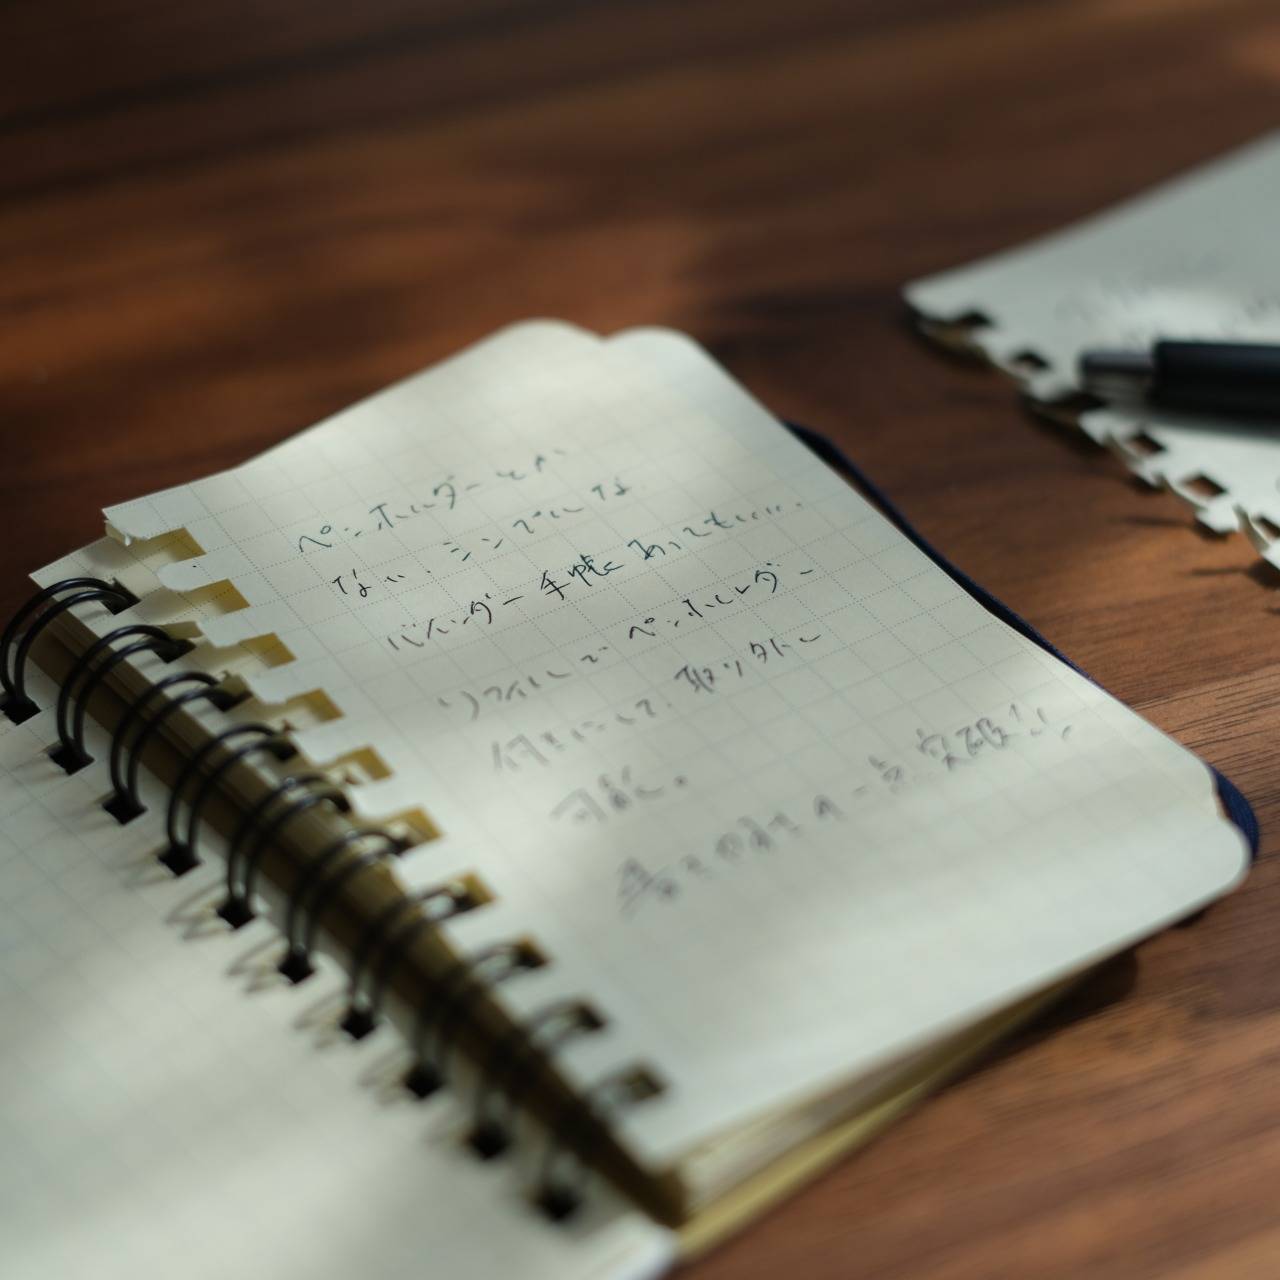 ペンホルダーとか
ない。シンプルな
バインダー手帳あってもいい。
リフィルでペンホルダー
付きにして、取り外し
可能。
の一点突破!!